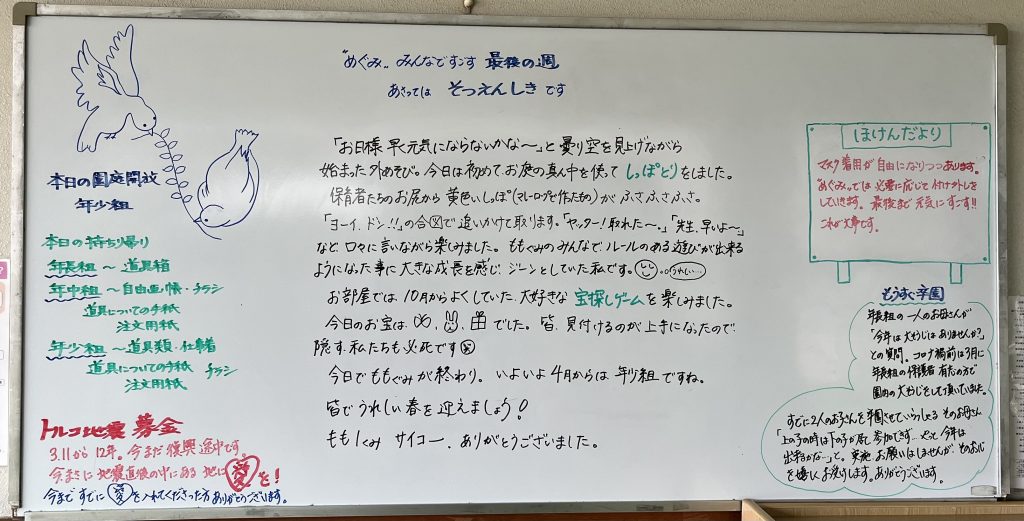 "めぐみ"みんなですごす 最後の週
あさっては そつえんしき です
本日の園庭開放
年少組
本日の持ち帰り
年長組 〜 道具箱
年中組 〜 自由画帳・チラシ
道具についての手紙
注文用紙
年少組 〜 道具類・仕事着
道具についての手紙 チラシ
注文用紙
トルコ地震 募金
3.11から12年。今まだ復興途中です。
今まさに 地震直後の中にある地に 愛 を!
今まで すでに 愛 を入れてくださった方 ありがとうございます。
「お日様 早く元気にならないかな〜」と 曇り空を見上げながら
始まった外あそび。今日は初めてお庭の真ん中を使って しっぽとりをしました。
保育者たちのお尻から 黄色いしっぽ(マリーロープで作ったもの)が ふさふさふさ。
「ヨーイ、ドン!!」の合図で追いかけて取ります。「ヤッター!取れた〜。」「先生、早いよ〜」
など、口々に言いながら楽しみました。ももぐみのみんなで、ルールのある遊びが出来る
ようになった事に大きな成長を感じ、ジーンとしていた私です。 うれしい…
お部屋では、10月からよくしていた、大好きな 宝探しゲームを楽しみました。
今日のお宝は、 でした。皆、見付けるのが上手になったので、
隠す、私たちも必死です
今日でももぐみが終わり。いよいよ4月からは 年少組ですね。
皆でうれしい春を迎えましょう!
もも1くみ サイコー、ありがとうございました。
ほけんだより
マスク着用が自由になりつつあります。
"めぐみ"では 必要に応じて付け外しを
していきます。最後まで元気にすごす!!
これが大事です。
もうすぐ卒園
年長組の一人のお母さんが
「今年は大そうじはありませんか?」
との質問。コロナ禍前は3月に
年長組の保護者有志の方で
園内の大そうじをして頂いていました。
すでに2人のお子さんを卒園させていらっしゃる そのお母さん
「上の子の時は下の子が居て参加できず、やっと今年は
出来るかな〜」と。実施お願いはしませんが、そのお心
を嬉しくお受けします。ありがとうございます。